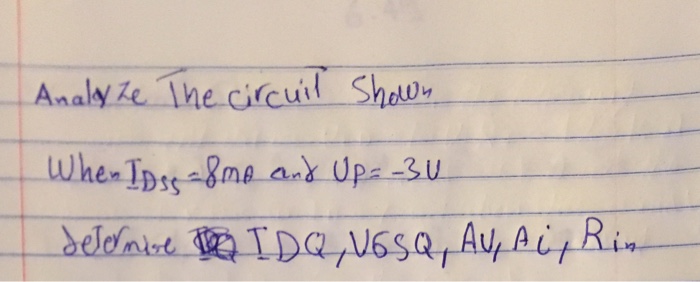 Analyze The circuit Shown
When IDSS = 8mA and Vp = -3V
determine IDQ, VGSQ, AV, Ai, Rin